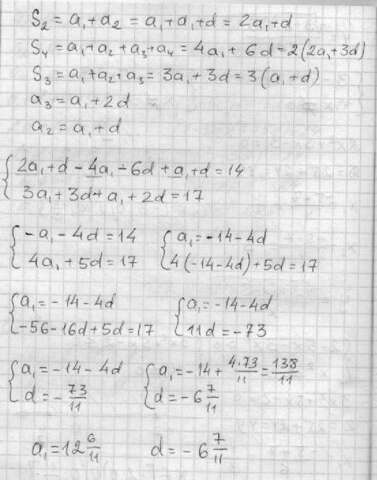 S₂ = a₁ + a₂ = a₁ + a₁ + d = 2a₁ + d
S₄ = a₁ + a₂ + a₃ + a₄ = 4a₁ + 6d = 2(2a₁ + 3d)
S₃ = a₁ + a₂ + a₃ = 3a₁ + 3d = 3(a₁ + d)
a₃ = a₁ + 2d
a₂ = a₁ + d
{ 2a₁ + d - 4a₁ - 6d + a₁ + d = 14
3a₁ + 3d + a₁ + 2d = 17
{ -a₁ - 4d = 14 { a₁ = -14 - 4d
4a₁ + 5d = 17 4(-14 - 4d) + 5d = 17
{ a₁ = -14 - 4d { a₁ = -14 - 4d
-56 - 16d + 5d = 17 11d = -73
{ a₁ = -14 - 4d { a₁ = -14 + 4·73/11 = 138/11
d = -73/11 d = -6 7/11
a₁ = 12 6/11 d = -6 7/11